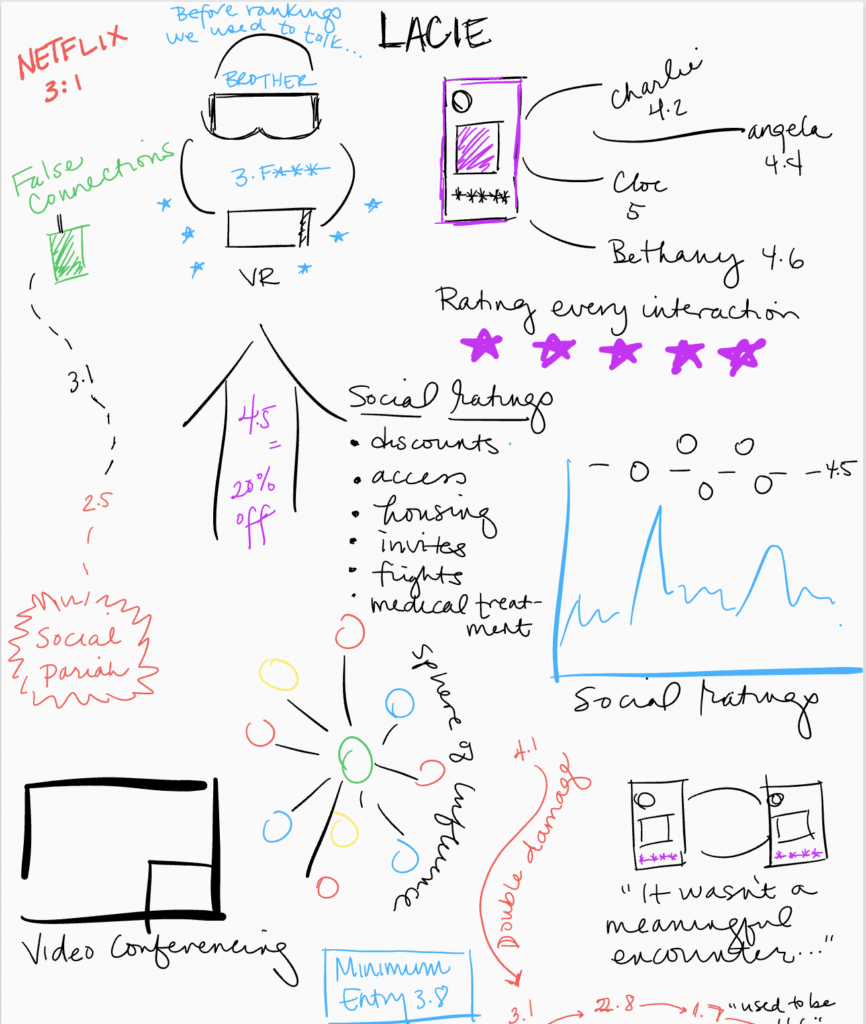 NETFLIX
3:1
Before rankings
we used to
talk...
BROTHER
3. F***
VR
LACIE
Charlie
4.2
angela
4.4
Cloe
5
Bethany 4.6
Rating every interaction
False
Connections
3.1
2.5
Social
pariah
4.5
=
20%
off
Social Ratings
• discounts
• access
• housing
• invites
• frights
• medical treat-
ment
4.5
Social Ratings
sphere of influence
Video Conferencing
4.1
Double damage
3.1
2.8
1.7
"used to be
Minimum
Entry 3.8
"It wasn't a
meaningful
encounter..."